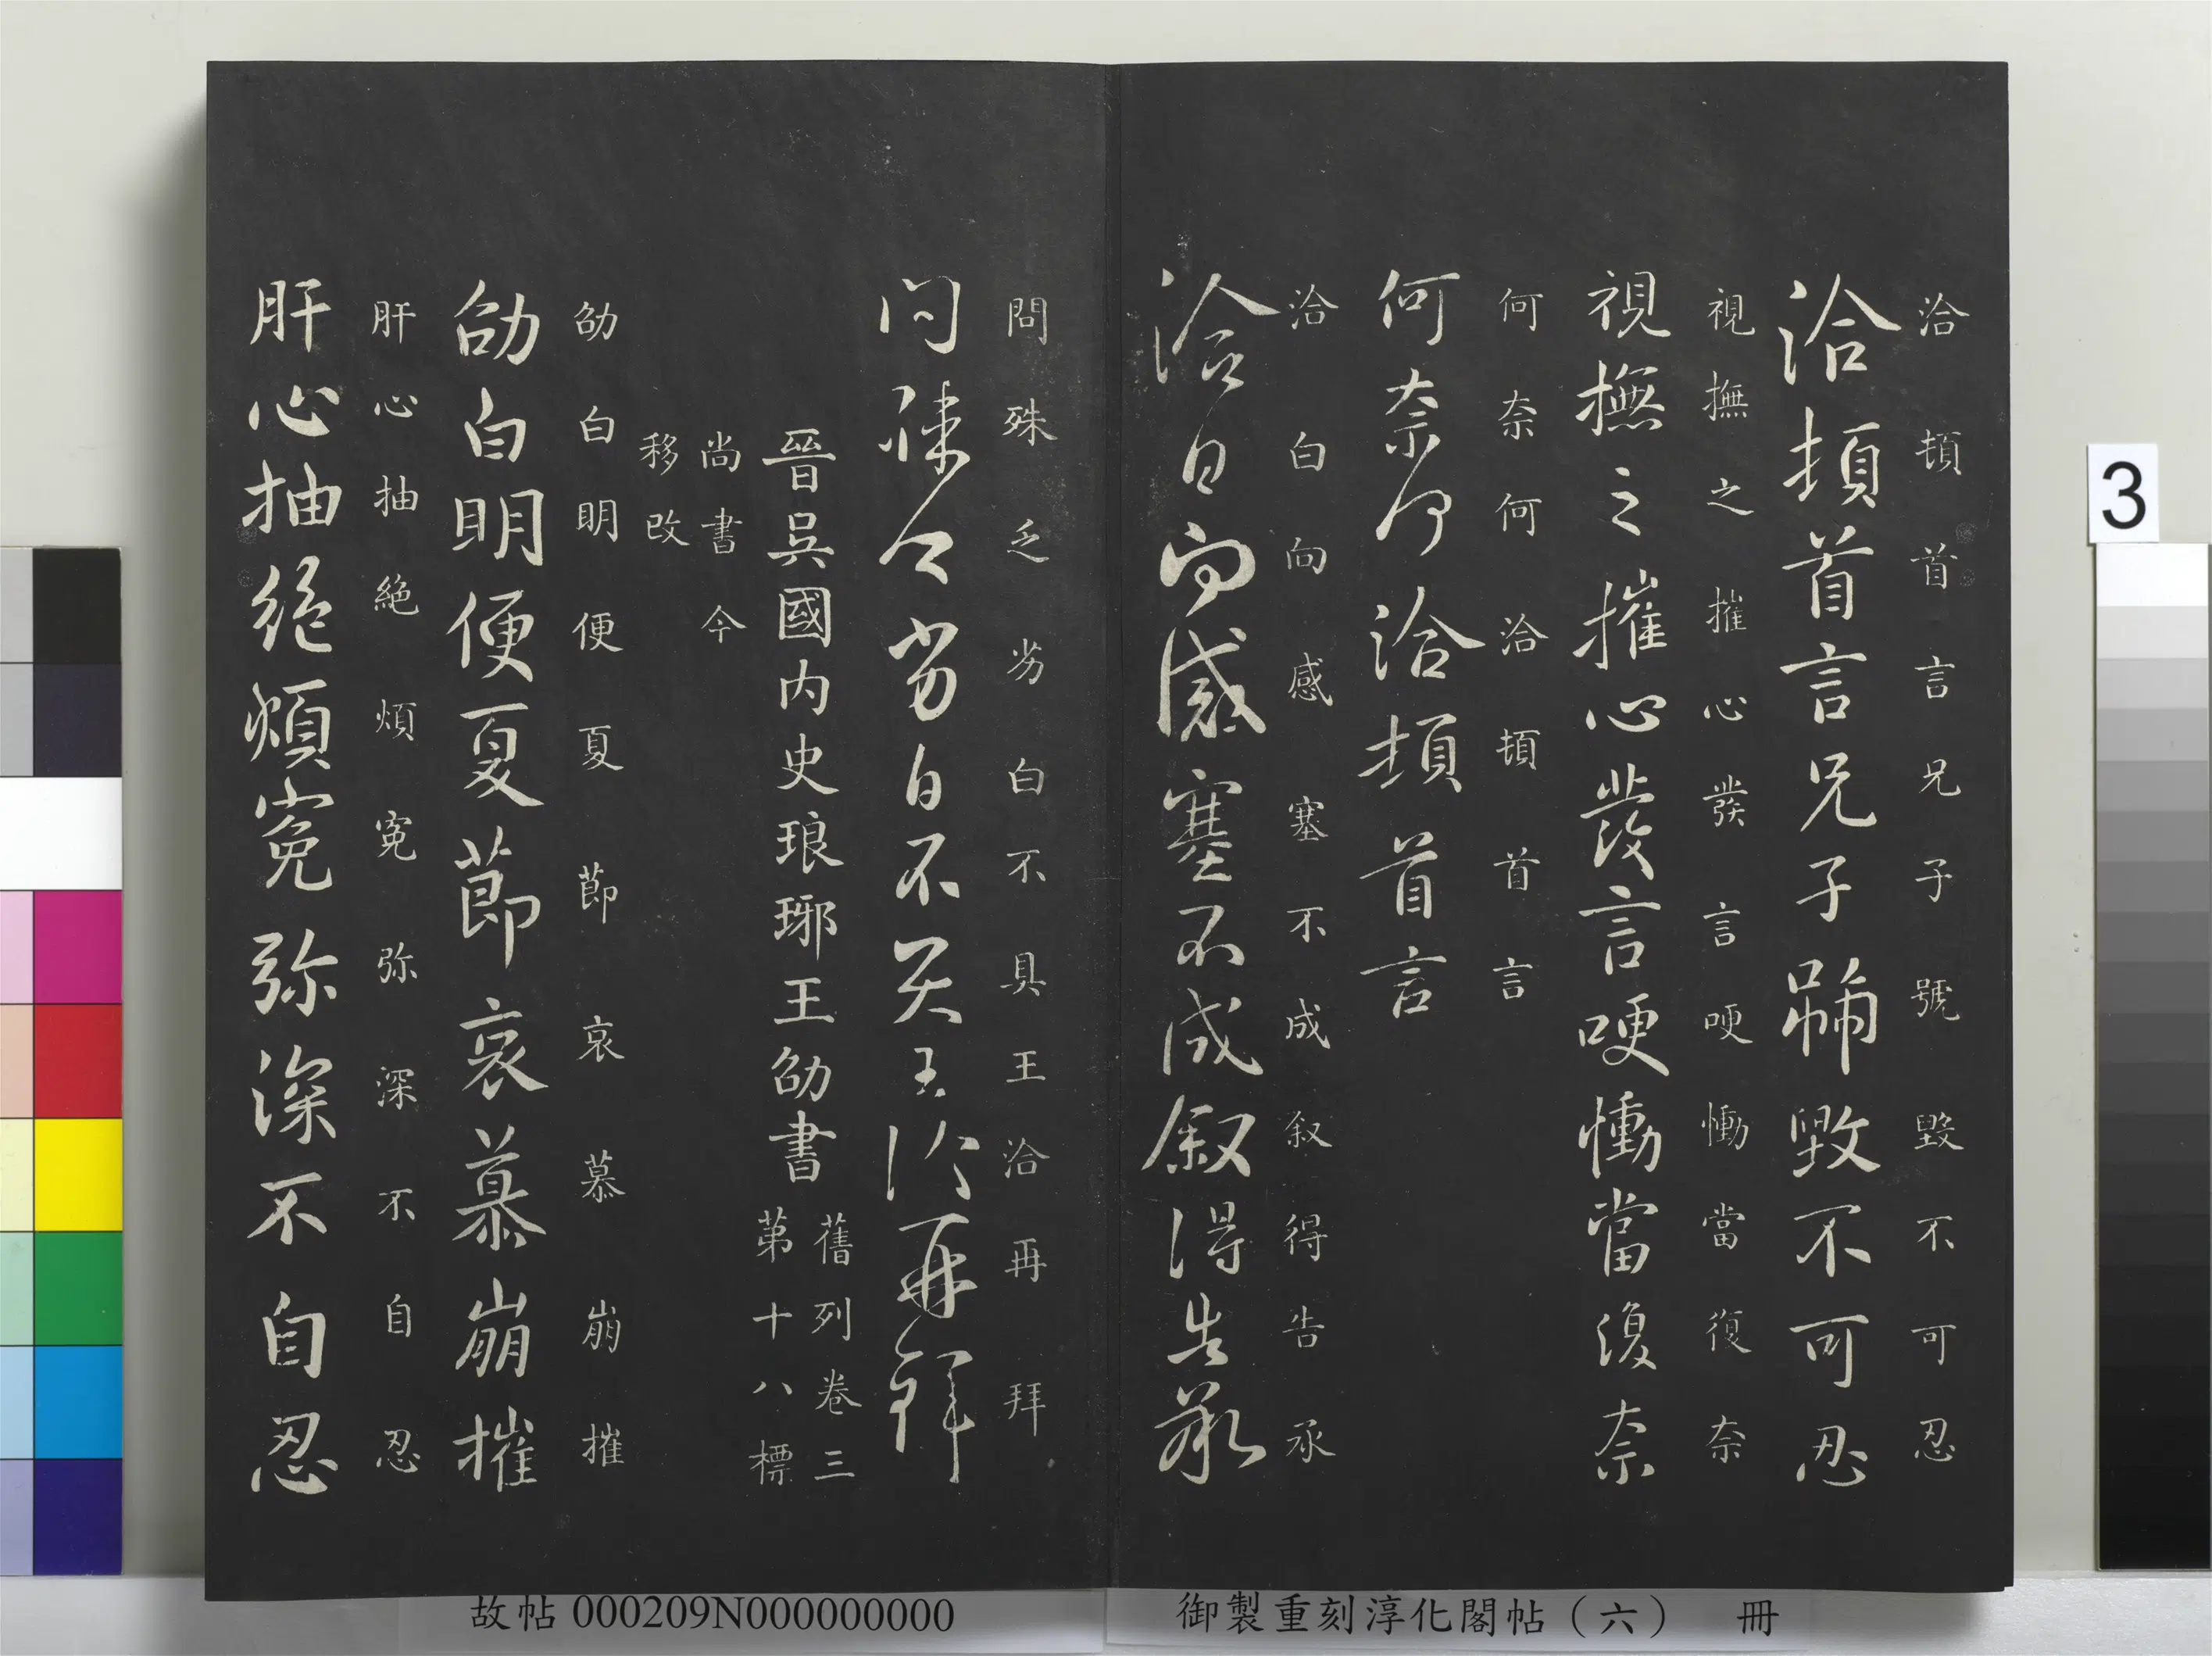 洽頓首言兄子號毀不可忍
洽頓首言兄子號毀不可忍
視撫之摧心發言哽慟當復奈
視撫之摧心發言哽慟當復奈
何奈何洽頓首言
何奈何洽頓首言
洽白向感塞不成叙得告承
洽白向感塞不成叙得告承
問殊乏劣白不具王洽再拜
問殊乏劣白不具王洽再拜
晉吳國内史琅琊王劭書
舊列卷三
第十八標
尚書今
移改
劭白明便夏節哀慕崩摧
劭白明便夏節哀慕崩摧
肝心抽絶煩寃弥深不自忍
肝心抽絶煩寃弥深不自忍
3
故帖 000209N000000000
御製重刻淳化閣帖（六） 冊